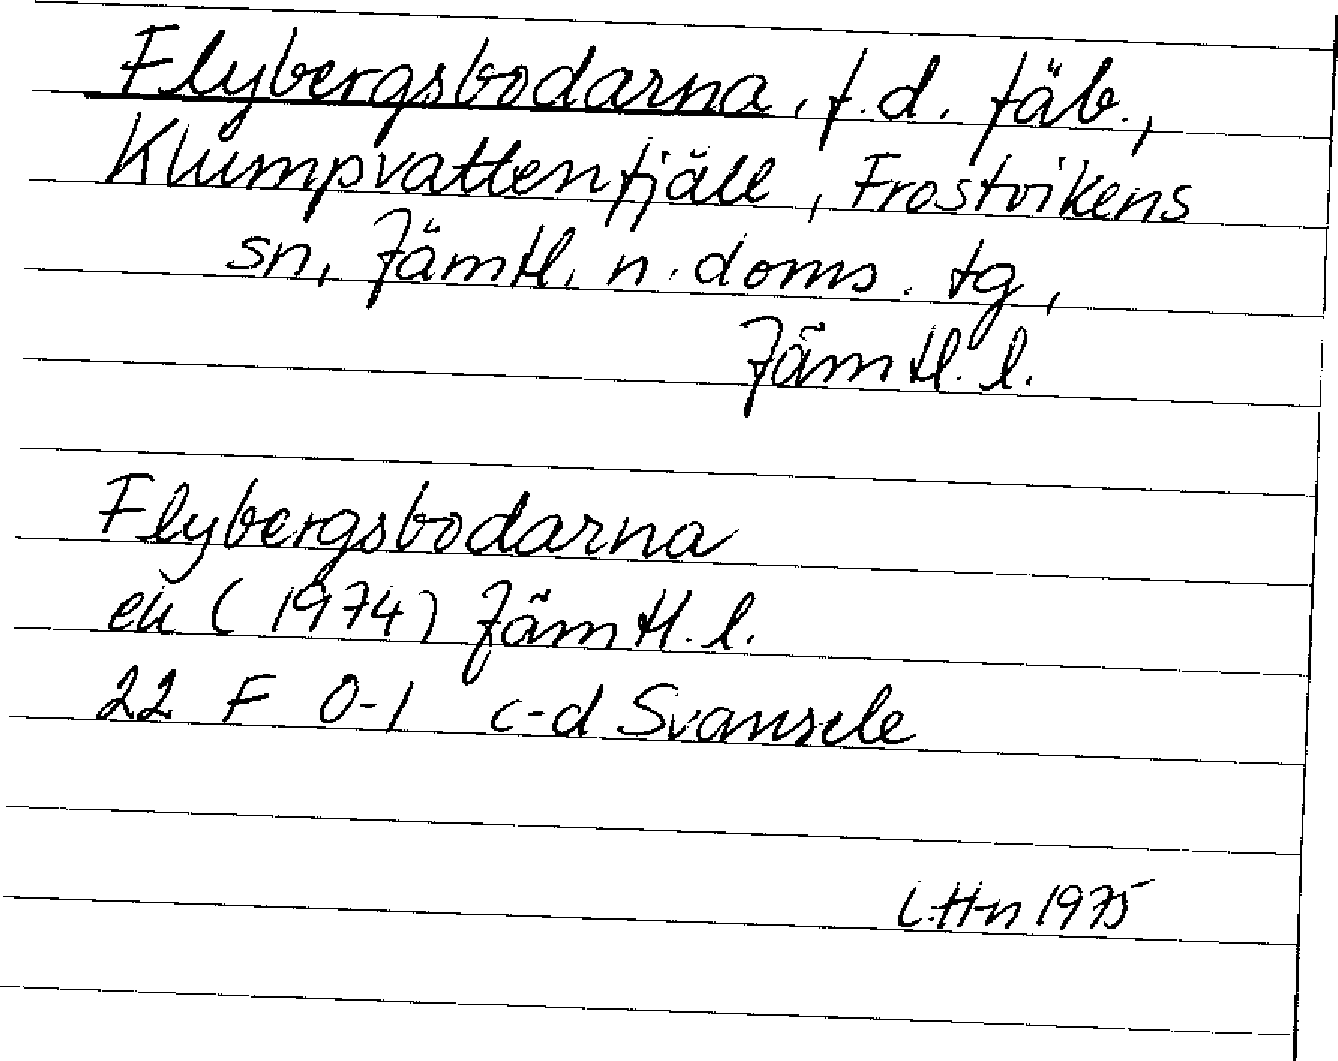 Flybergsbodarna, f.d. fäb.,
Klumpvattenfjäll, Frostvikens
sn, Jämtl. n. doms. tg,
Jämtl. l.
Flybergsbodarna
ek (1974) Jämtl. l.
22 F 0-1 c-d Svansele
L.H-n 1975